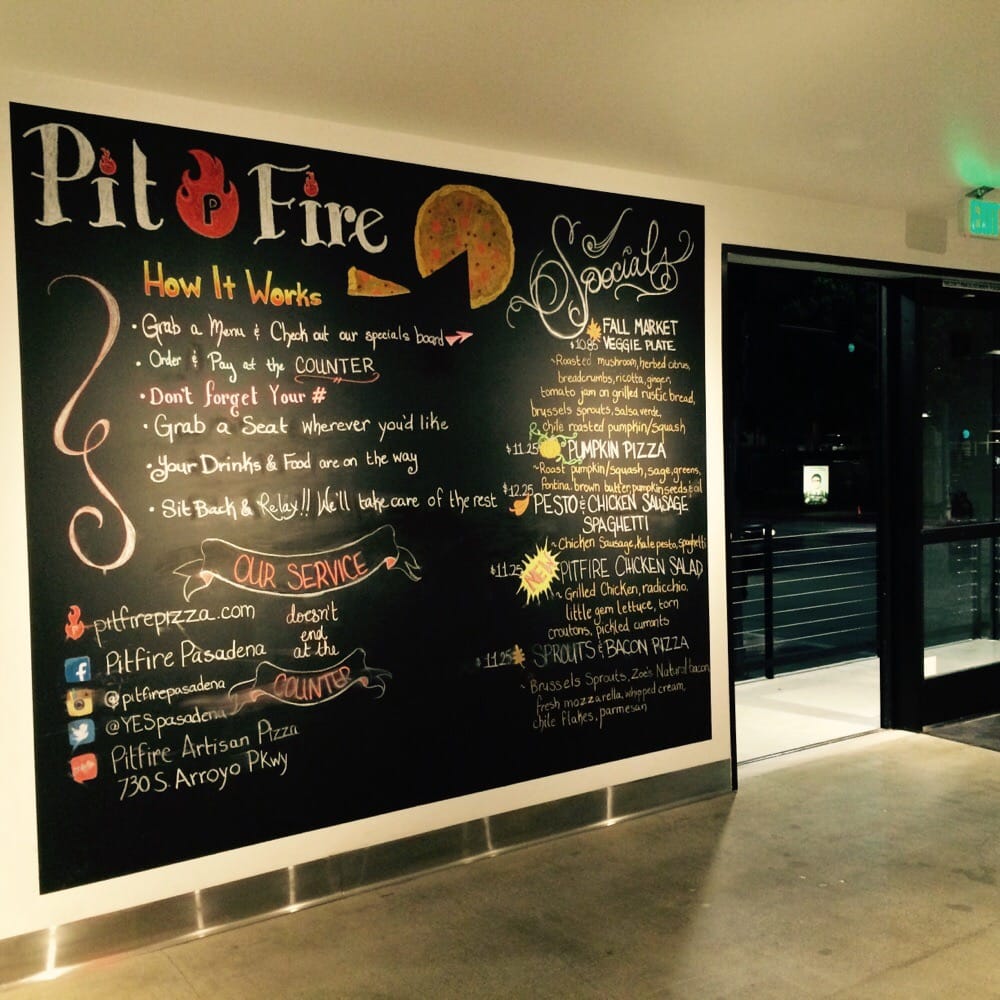 Pit P Fire
How It Works
• Grab a Menu & Check out our specials board
• Order & Pay at the COUNTER
• Don't forget Your #
• Grab a Seat wherever you'd like
• Your Drinks & Food are on the way
• Sit Back & Relax!! We'll take care of the rest
OUR SERVICE
doesn't
end
at the
COUNTER
pitfirepizza.com
Pitfire Pasadena
@pitfirepasadena
@YESpasadena
Pitfire Artisan Pizza
730 S. Arroyo PKwy
Specials
FALL MARKET
$10.85 VEGGIE PLATE
~Roasted mushroom, herbed citrus,
breadcrumbs, ricotta, ginger,
tomato jam on grilled rustic bread,
brussels sprouts, salsa verde,
chile roasted pumpkin/squash
$11.25 PUMPKIN PIZZA
~Roast pumpkin/squash, sage, greens,
fontina, brown butter, pumpkin seeds & oil
$12.25 PESTO & CHICKEN SAUSAGE
SPAGHETTI
~Chicken Sausage, kale pesto, spaghetti
$11.25 NEW PITFIRE CHICKEN SALAD
~Grilled Chicken, radicchio,
little gem lettuce, torn
croutons, pickled currants
$11.25 SPROUTS & BACON PIZZA
~Brussels Sprouts, Zoe's Natural bacon,
fresh mozzarella, whipped cream,
chile flakes, parmesan